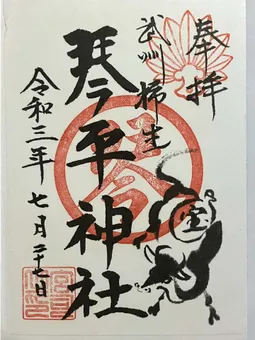 奉拝
武州柿生
琴平神社
令和三年七月二十七日